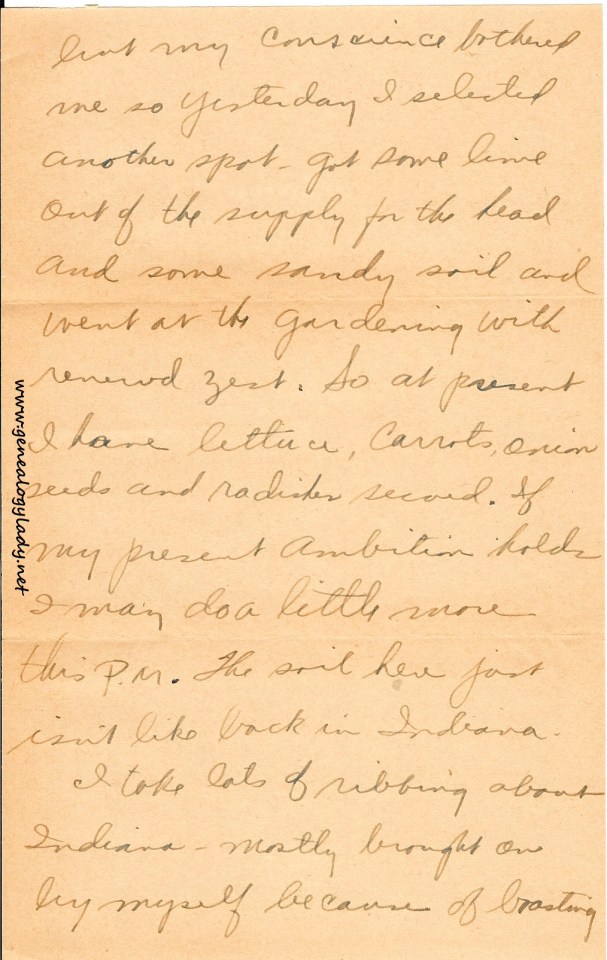 but my conscience bothered
me so yesterday I selected
another spot - got some lime
out of the supply for the head
and some sandy soil and
went at the gardening with
renewd zest. So at present
I have lettuce, carrots, onion
seeds and radishes secured. If
my present ambition holds
I may do a little more
this P.M. The soil here just
isn't like back in Indiana.
I take lots of ribbing about
Indiana - mostly brought on
by myself because of boasting
www.genealogylady.net